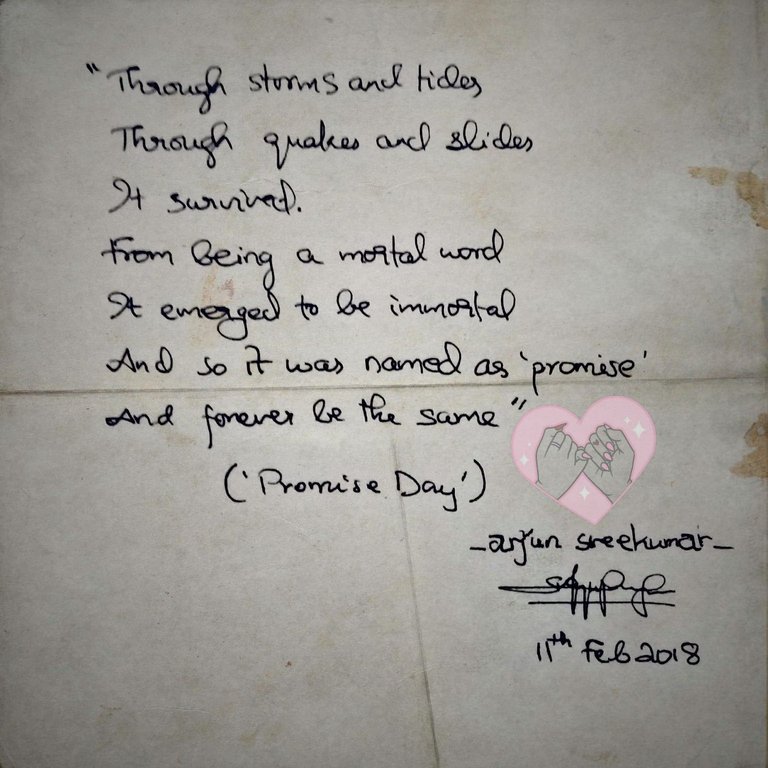 "Through storms and tides
Through quakes and slides
It survived.
From being a mortal word
It emerged to be immortal
And so it was named as 'promise'
And forever be the same"
('Promise Day')
-arjun sreekumar-
11th Feb 2018